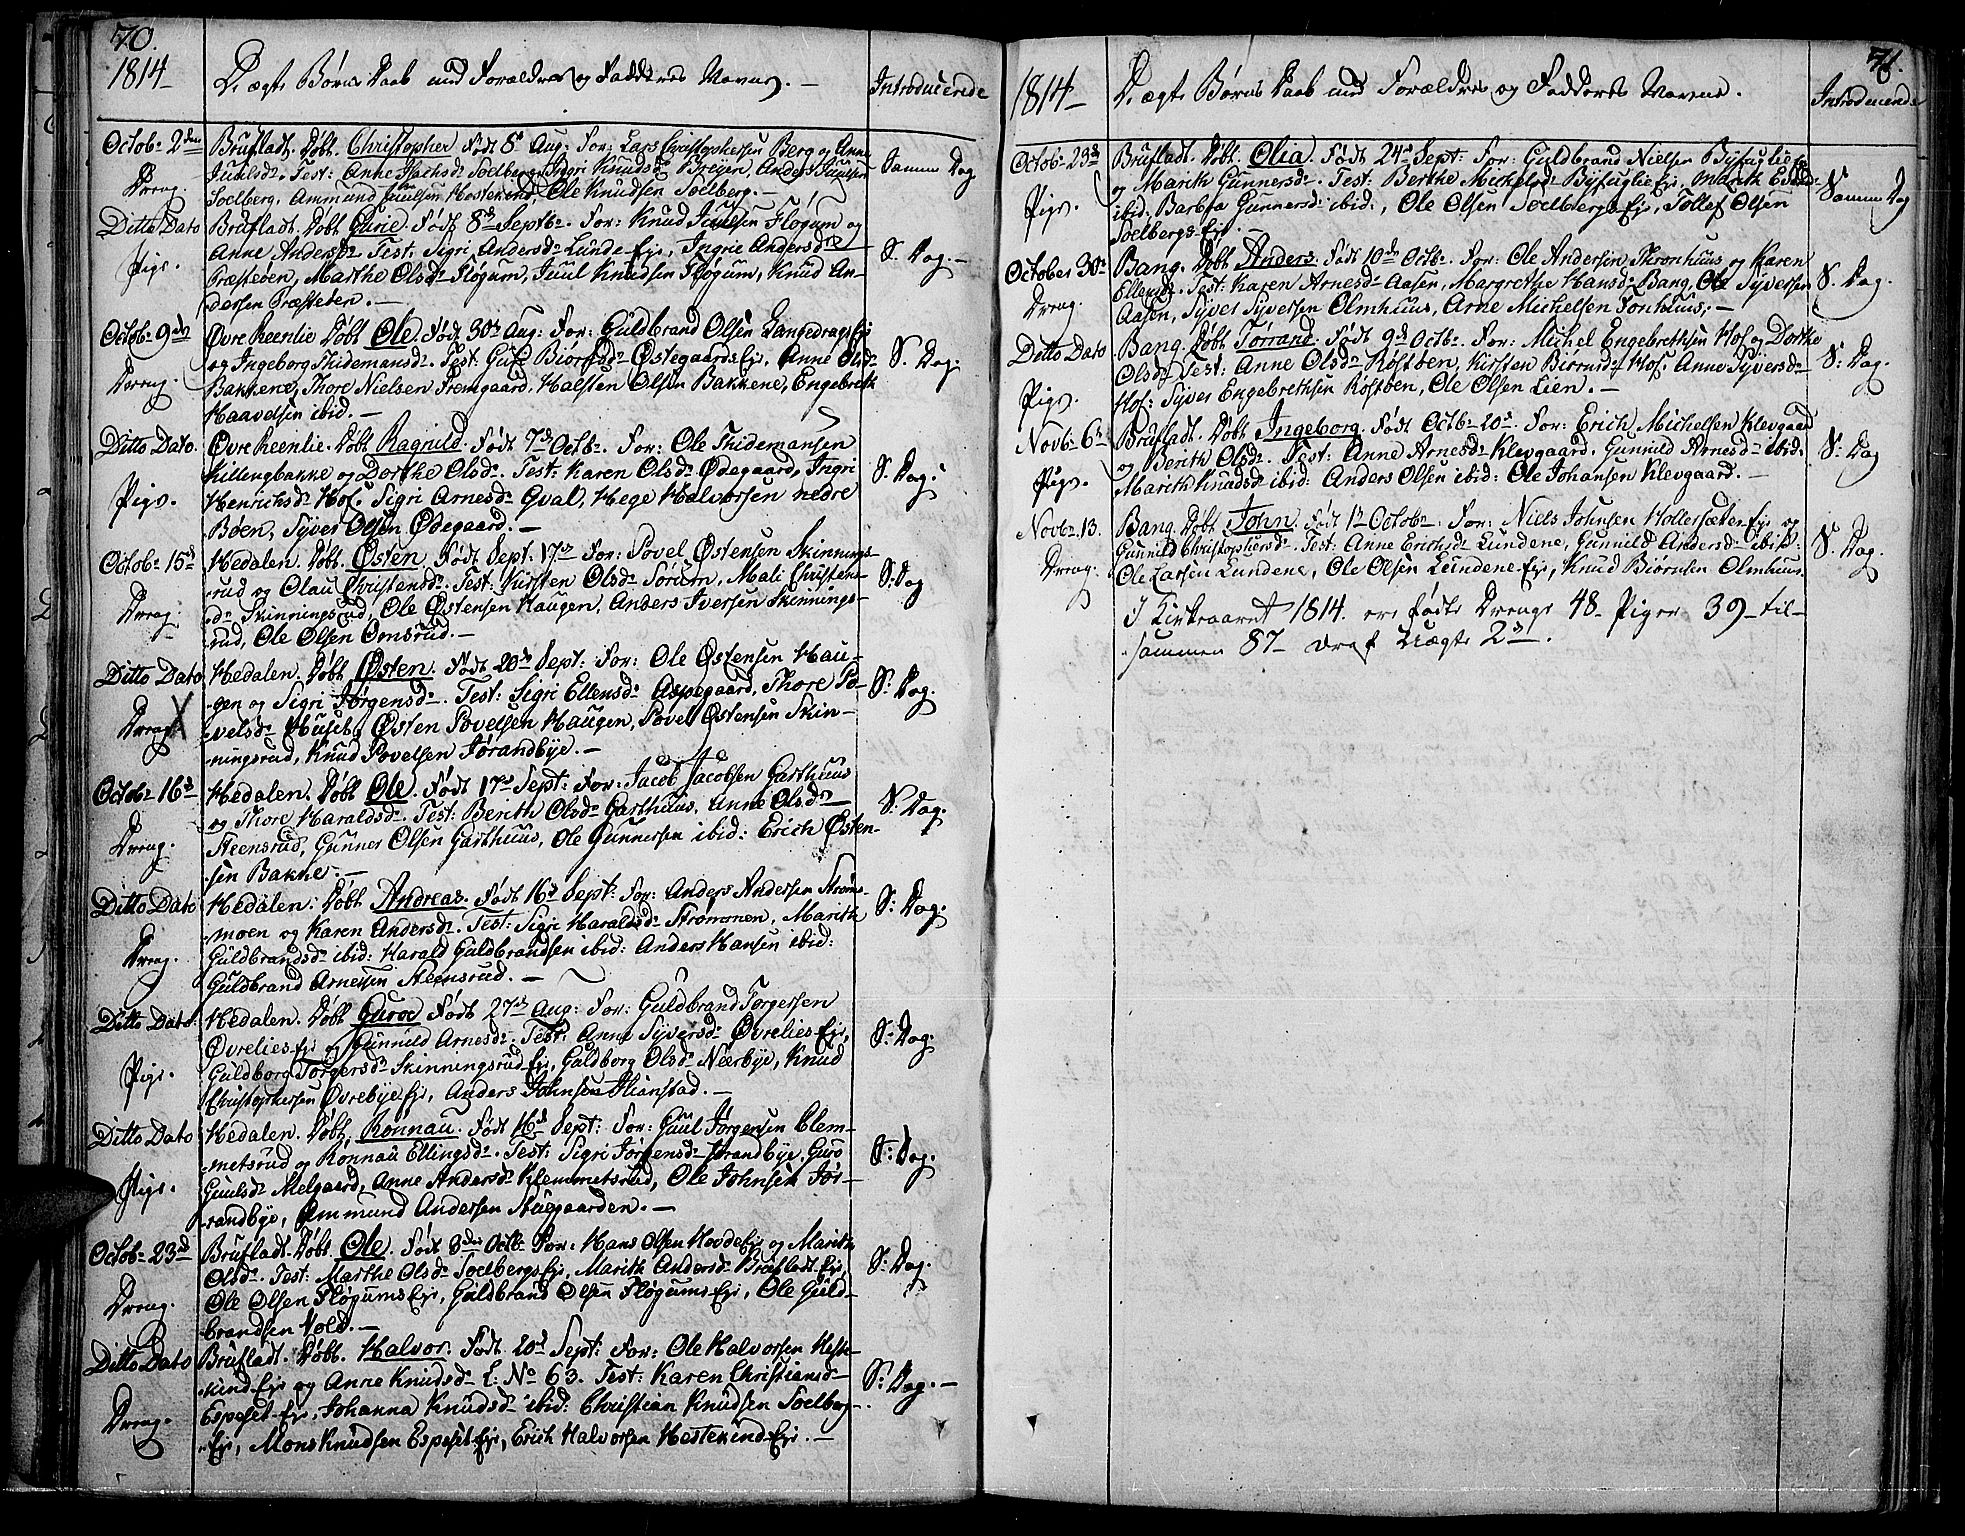 70.
1814
De ægte Børns Daab med Forældres og Faddernes Navne. —
Introducerede
Octob: 2den
Brufladt. Døbt. Christopher Født 8d Aug: For: Lars Christophersen Berg og Anne
Juulsd: Test: Anne Isachsd: Soelberg, Ingri Knudsd: Anders Juulsen
Soelberg, Ammund Juulsen Hestekind, Ole Knudsen Soelberg. —
Dreng.
Samme Dag
Ditto Dato
Brufladt. Døbt Gurie. Født 8d Septb: For: Knud Juulsen Fløgum og
Anne Andersd: Test: Sigri Andersd: Lunde-Eje, Ingrie Andersd:
Præsteten, Marthe Olsd: Fløgum, Juul Knudsen Fløgum, Knud An-
dersen Præsteten. —
Pige.
S. Dag. —
Octob: 9de
Øvre Reenlie Døbt Ole. Født 30d Aug: For: Guldbrand Olsen Langedrags Eje
og Ingeborg Thidemansd: Test: Guri Biørnsd: Østegaards Eje, Anne Olsd:
Bakkene, Thore Nielsen Fremgaard, Halsten Olsen Bakkene, Engebreth
Haavelsen ibid. —
Dreng.
S. Dag.
Ditto Dato.
Øvre Reenlie. Døbt Ragnild. Født 7d Octb: For: Ole Thidemansen
Killingbakke og Dorthe Olsd: Test: Karen Olsd: Ødegaard, Ingri
Henrichsd: Hof, Sigri Arnesd: Gval, Hege Halvorsen nedre
Bøen, Syver Olsen Ødegaard. —
Pige.
S. Dag:
Octob: 15d
Hedalen. Døbt. Østen. Født Sept: 17d For: Povel Østensen Skinnings-
rud og Olau Christensd: Test: Kirsten Olsd: Sørum, Mali Christens-
d: Skinningsrud, Ole Østensen Haugen, Anders Iversen Skinnings-
rud, Ole Olsen Omsrud. —
Dreng.
S: Dag
Ditto Dato
Hedalen. Døbt Østen. Født 20d Sept: For: Ole Østensen Hau-
gen og Sigri Jørgensd: Test: Sigri Ellensd: Aspegaard, Thore Po-
velsd: Huset, Østen Povelsen Haugen, Povel Østensen Skin-
ningsrud, Knud Povelsen Jørandbye. —
Dreng X
S: Dag.
Octob: 16d
Hedalen. Døbt Ole. Født 17d Sept: For: Jacob Jacobsen Garthuus
og Thore Haraldsd: Test: Berith Olsd: Garthuus, Anne Olsd:
Steensrud, Gunner Olsen Garthuus, Ole Gunnersen ibid: Erich Østen-
sen Bakke. —
Dreng.
S: Dag.
Ditto Dato
Hedalen. Døbt Andreas. Født 16d Sept: For: Anders Andersen Strøms-
moen og Karen Andersd: Test: Sigri Haraldsd: Strømmen, Marith
Guldbrandsd: ibid: Harald Guldbrandsen ibid: Anders Hansen ibid:
Guldbrand Arnesen Steensrud. —
Dreng.
S: Dag.
Ditto Dato
Hedalen. Døbt Guroe Født 27d Aug: For: Guldbrand Torgersen
Øvrelies-Eje og Gunnild Arnesd: Test: Anne Syversd: Øvrelies-Eje,
Guldborg Torgersd: Skinningsrud Eje, Guldborg Olsd: Nærbye, Knud
Christophersen Øvrebye Eje, Anders Johnsen Jlianstad. —
Pige.
S: Dag.
Ditto Dato
Hedalen. Døbt. Ronnau. Født 16d Sept: For: Guul Jørgensen Clem-
metsrud og Ronnau Ellingsd: Test: Sigri Jørgensd: Jørandbye, Guro
Guulsd: Melgaard, Anne Andersd: Klemmetsrud, Ole Johnsen Jør-
randbye, Ommund Andersen Stuegaarden. —
Pige.
S: Dag.
Octob: 23d
Brufladt. Døbt. Ole. Født 8de Octb: For: Hans Olsen Hovde Eje og Marith
Olsd: Test: Marthe Olsd: Soelbergs Eje, Marith Andersd: Brufladt Eje,
Ole Olsen Fløgums-Eje, Guldbrand Olsen Fløgums-Eje, Ole Guld-
brandsen Vold. —
Dreng.
S: Dag.
Ditto Dato
Brufladt. Døbt. Halvor. Født 20d Sept: For: Ole Halvorsen Heste-
kind-Eje og Anne Knudsd: L: No 63. Test: Karen Christiansd:
Espeset-Eje, Johanna Knudsd: ibid: Christian Knudsen Soelberg-
Eje, Mons Knudsen Espeset-Eje, Erich Halvorsen Hestekind-Eje. —
Dreng.
S: Dag. —
71.
1814
De ægte Børns Daab med Forældres og Fadderes Navne.
Introducerede
Octob: 23d
Brufladt. Døbt. Olia. Født 24d Sept: For: Guldbrand Nielsen Byfuglie Eje
og Marith Gunnersd: Test: Berthe Mickelsd: Byfuglie Eje, Marith
ibid: Barbra Gunnersd: ibid:, Ole Olsen Soelbergs Eje, Tollef Olsen
Soelbergs-Eje. —
Pige.
Samme Dag
October 30d
Bang. Døbt Anders. Født 10de Octb: For: Ole Andersen Thronhuus og Karen
Ellensd: Test: Karen Arnesd: Aasen, Margrethe Hansd: Bang, Ole Syversen
Aasen, Syver Syversen Olmhuus, Arne Michelsen Tonhuus. —
Dreng
S: Dag.
Ditto Dato
Bang. Døbt Tørrand. Født 9d Octb: For: Michel Engebrethsen Hof og Dorthe
Olsd: Test: Anne Olsd: Rostøen, Kirsten Biørnsd: Hof, Anne Syversd:
Hof: Syver Engebrethsen Rostøen, Ole Olsen Lien. —
Pige.
S: Dag.
Novb: 6te
Brufladt. Døbt Ingeborg. Født Octb: 20d. For: Erich Michelsen Klevgaard
og Berith Olsd: Test: Anne Arnesd: Klevgaard, Gunnild Arnesd: ibid:
Marith Knudsd: ibid: Anders Olsen ibid: Ole Johansen Klevgaard. —
Pige.
S: Dag
Novb: 13.
Bang. Døbt John. Født 1d October: For: Niels Johnsen Hollersæter-Eje og
Gunnild Christophersd: Test: Anne Erichsd: Lundene, Gunnild Andersd: ibid:
Ole Larsen Lundene, Ole Olsen Lundene-Eje, Knud Biørnsen Olmhuus.
Dreng.
S: Dag.
I Kirkeaaret 1814. ere fødte Drenge 48 Piger 39 — til-
sammen 87 — deraf Uægte 2de.